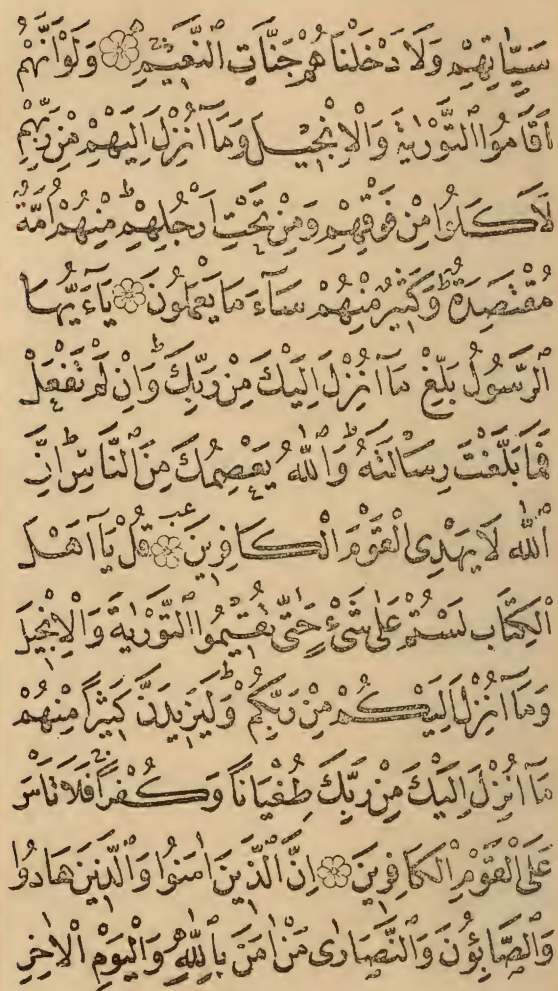 سَيِّاٰتِهِمْ وَلَاَدْخَلْنَاهُمْ جَنَّاتِ النَّعٖيمِ ۞ وَلَوْ اَنَّهُمْ
اَقَامُوا التَّوْرٰيةَ وَالْاِنْجٖيلَ وَمَٓا اُنْزِلَ اِلَيْهِمْ مِنْ رَبِّهِمْ
لَاَكَلُوا مِنْ فَوْقِهِمْ وَمِنْ تَحْتِ اَرْجُلِهِمْ ط مِنْهُمْ اُمَّةٌ
مُقْتَصِدَةٌ ط وَكَثٖيرٌ مِنْهُمْ سَٓاءَ مَا يَعْمَلُونَ ۞ يَٓا اَيُّهَا
الرَّسُولُ بَلِّغْ مَٓا اُنْزِلَ اِلَيْكَ مِنْ رَبِّكَ ط وَاِنْ لَمْ تَفْعَلْ
فَمَا بَلَّغْتَ رِسَالَتَهُ ط وَاللّٰهُ يَعْصِمُكَ مِنَ النَّاسِ ط اِنَّ
اللّٰهَ لَا يَهْدِى الْقَوْمَ الْكَافِرٖينَ ۞ قُلْ يَٓا اَهْلَ
الْكِتَابِ لَسْتُمْ عَلٰى شَىْءٍ حَتّٰى تُقٖيمُوا التَّوْرٰيةَ وَالْاِنْجٖيلَ
وَمَٓا اُنْزِلَ اِلَيْكُمْ مِنْ رَبِّكُمْ ط وَلَيَزٖيدَنَّ كَثٖيرًا مِنْهُمْ
مَٓا اُنْزِلَ اِلَيْكَ مِنْ رَبِّكَ طُغْيَانًا وَكُفْرًا ج فَلَا تَاْسَ
عَلَى الْقَوْمِ الْكَافِرٖينَ ۞ اِنَّ الَّذٖينَ اٰمَنُوا وَالَّذٖينَ هَادُوا
وَالصَّابِؤُنَ وَالنَّصَارٰى مَنْ اٰمَنَ بِاللّٰهِ وَالْيَوْمِ الْاٰخِرِ